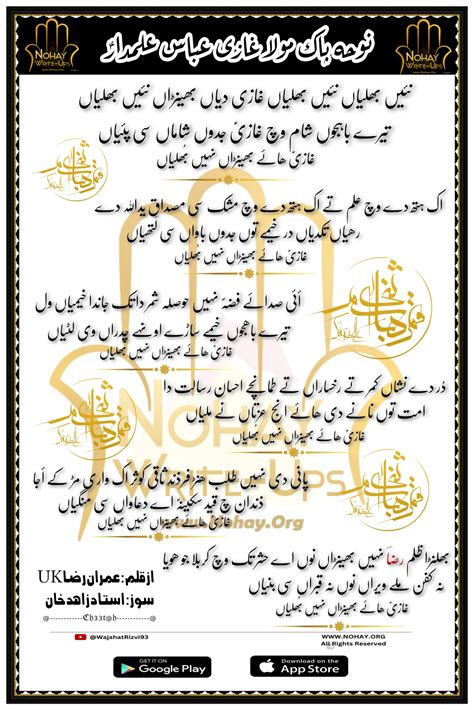 NOHAY
WRITE-UPS
نوحہ پاک مولا غازی عباس علمدارؑ
NOHAY
WRITE-UPS
نئیں بھلیاں نئیں بھلیاں غازی دیاں بھینڑاں نئیں بھلیاں
تیرے باہجوں شام وچ غازیؑ جدوں شاماں سی پئیاں
غازیؑ ھائے بھینڑاں نہیں بھلیاں
اک ہتھ دے وچ علم تے اک ہتھ دے وچ مشک سی مصداق یداللہ دے
رھیاں تکدیاں در خیمے توں جدوں باواں سی لتھیاں
غازیؑ ھائے بھینڑاں نہیں بھلیاں
آئی صدائے فضہؑ نہیں حوصلہ شمر دا تک جاندا خیمیاں ول
تیرے باہجوں خیمے ساڑے اونھے چدراں وی لٹیاں
غازیؑ ھائے بھینڑاں نہیں بھلیاں
در دے نشاں کمر تے رخساراں تے طمانچے احسان رسالت دا
امت توں نانے دی ھائے انج عزتاں نے ملیاں
غازیؑ ھائے بھینڑاں نہیں بھلیاں
NOHAY
WRITE-UPS
www.Nohay.Org
پانی دی نہیں طلب ھنڑ فرزند ثاقی کوثر اک واری مڑ کے آجا
زندان چ قید سکینہؑ اے دعاواں سی منگیاں
غازیؑ ھائے بھینڑاں نہیں بھلیاں
بھلنڑا ظلم رضاؔ نہیں بھینڑاں نوں اے حشر تک وچ کربلا جو ھویا
نہ کفن ملے ویراں نوں نہ قبراں سی بنیاں
غازیؑ ھائے بھینڑاں نہیں بھلیاں
ازقلم: عمران رضا UK
سوز: استاد زاھد خان
@------------Ch33t@h------------@
@WajahatRizvi93
WWW.NOHAY.ORG
All Rights Reserved
GET IT ON
Google Play
Download on the
App Store